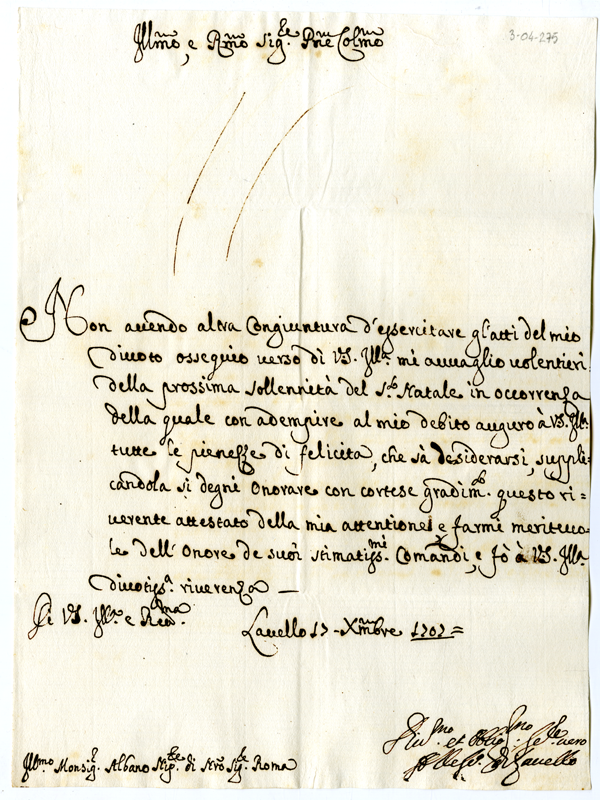 Jllmo, e Rmo Sig.re Pne Colmo
3-04-275
Non auendo altra Congiuntura d'essercitare gl'atti del mio
diuoto osseguio uerso di VS. Jlla. mi auuaglio uolentieri
della prossima sollennità del S.to Natale in occorrenza
della quale con adempire al mio debito auguro à VS. Jlla:
tutte le pienezze di felicita, che sà desiderarsi, suppli=
candola si degni onorare con cortese gradim.to questo ri=
uerente attestato della mia attentione e farmi meriteuo=
le dell'Onore de suoi stimatiss.mi Comandi, e fò à VS. Jlla.
diuotiss.a riuerenza —
Di VS. Jlla. e Reu.ma
Lauello 17 - Xmbre 1707 =
Diu.mo et Obblig.mo Se.re uero
di Lauello
Jllmo Monsig.r Albano di Sig.re Roma